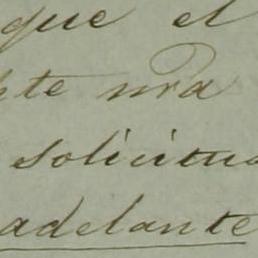 que el
nra
solicitu
adelante